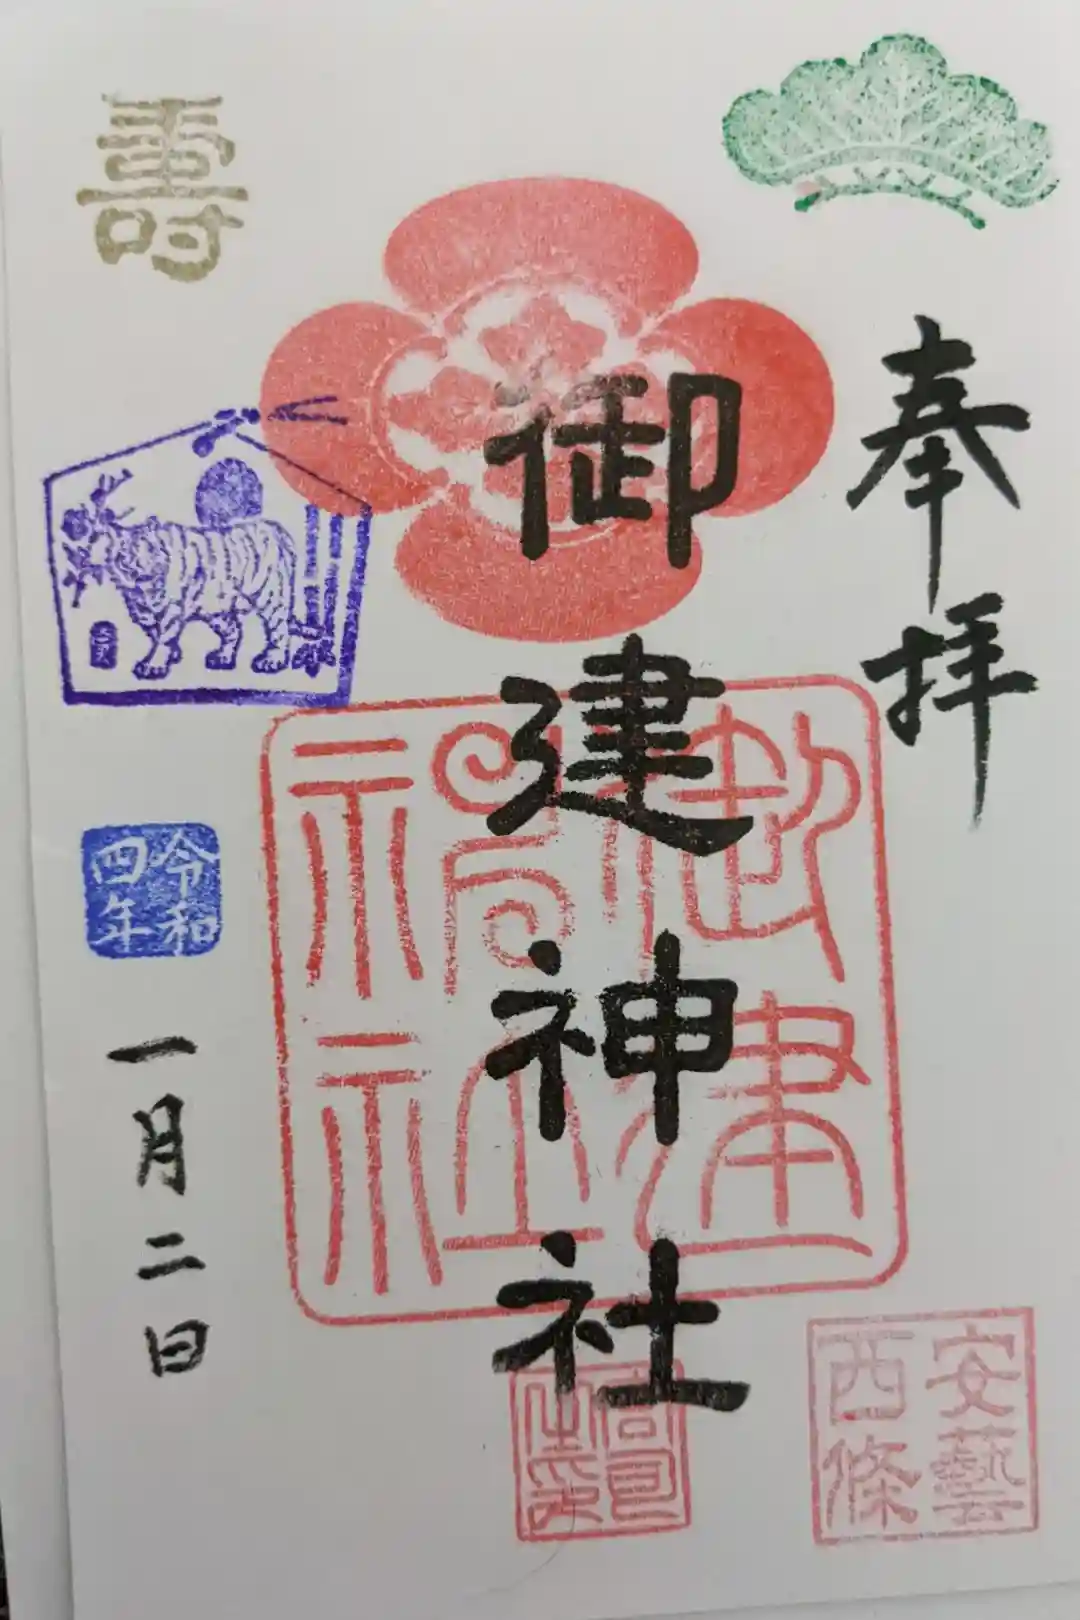 奉拝
安藝
西條
御建神社
御建
神社
宮司
之印
壽
令和
四年
一月二日